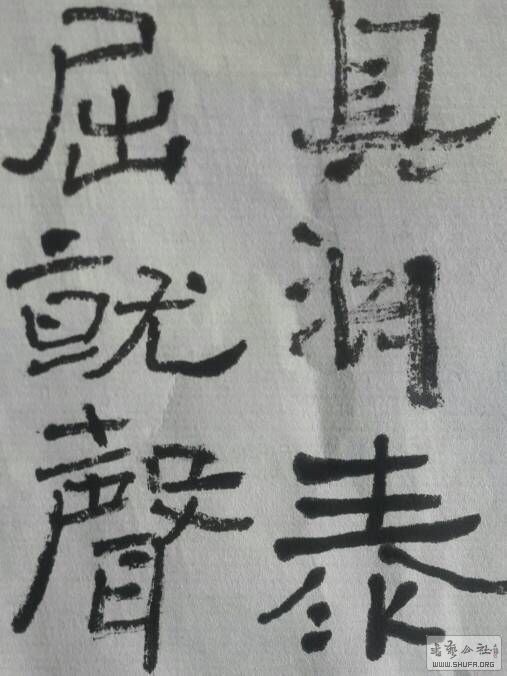 具泰
屈就聲
书艺公社
WWW.SHUFA.ORG